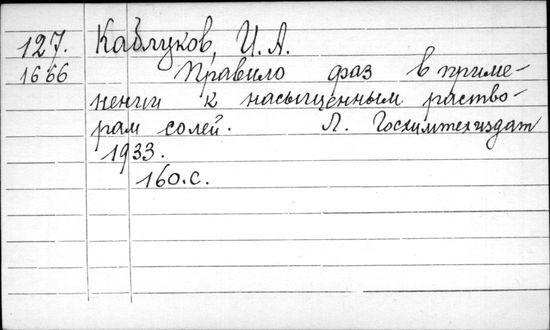 127. Каблуков, И. А.
1666 Правило фаз в приме-
нении к насыщенным раство-
рам солей. Л. Госхимтехиздат
1933.
160.с.